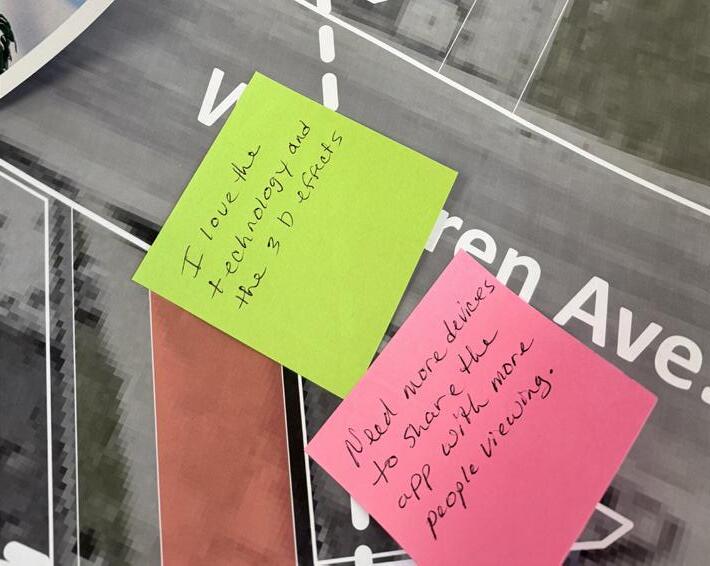 W
ren Ave.
I love the
technology and
the 3 D effects
Need more devices
to share the
app with more
people viewing.